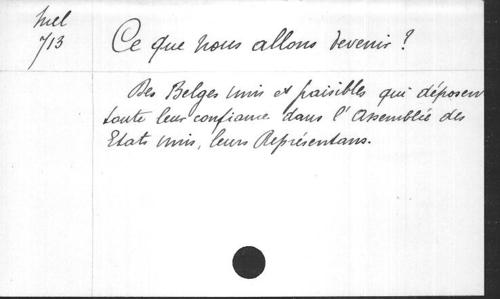 Mel
713
Ce que nous allons devenir?
Des Belges unis et paisibles qui déposent
toute leur confiance dans l'Assemblée des
Etats unis, leurs Représentans.